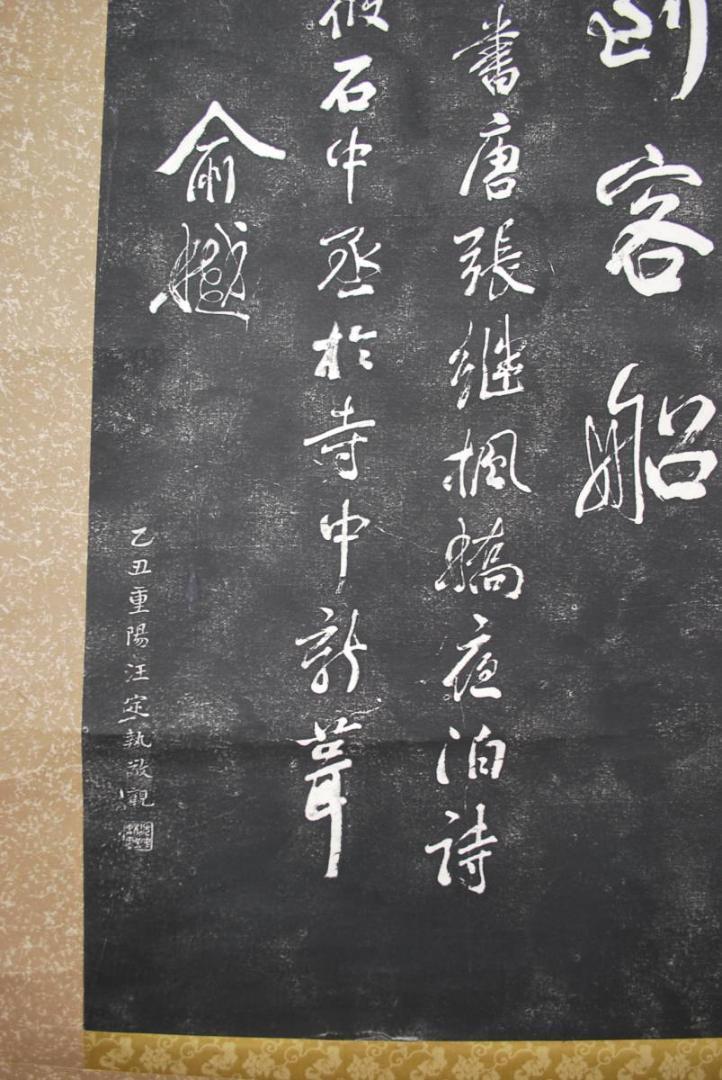 到客船
書唐張継楓橋夜泊詩
筱石中丞於寺中新葺
俞樾
乙丑重陽汪定執敬觀